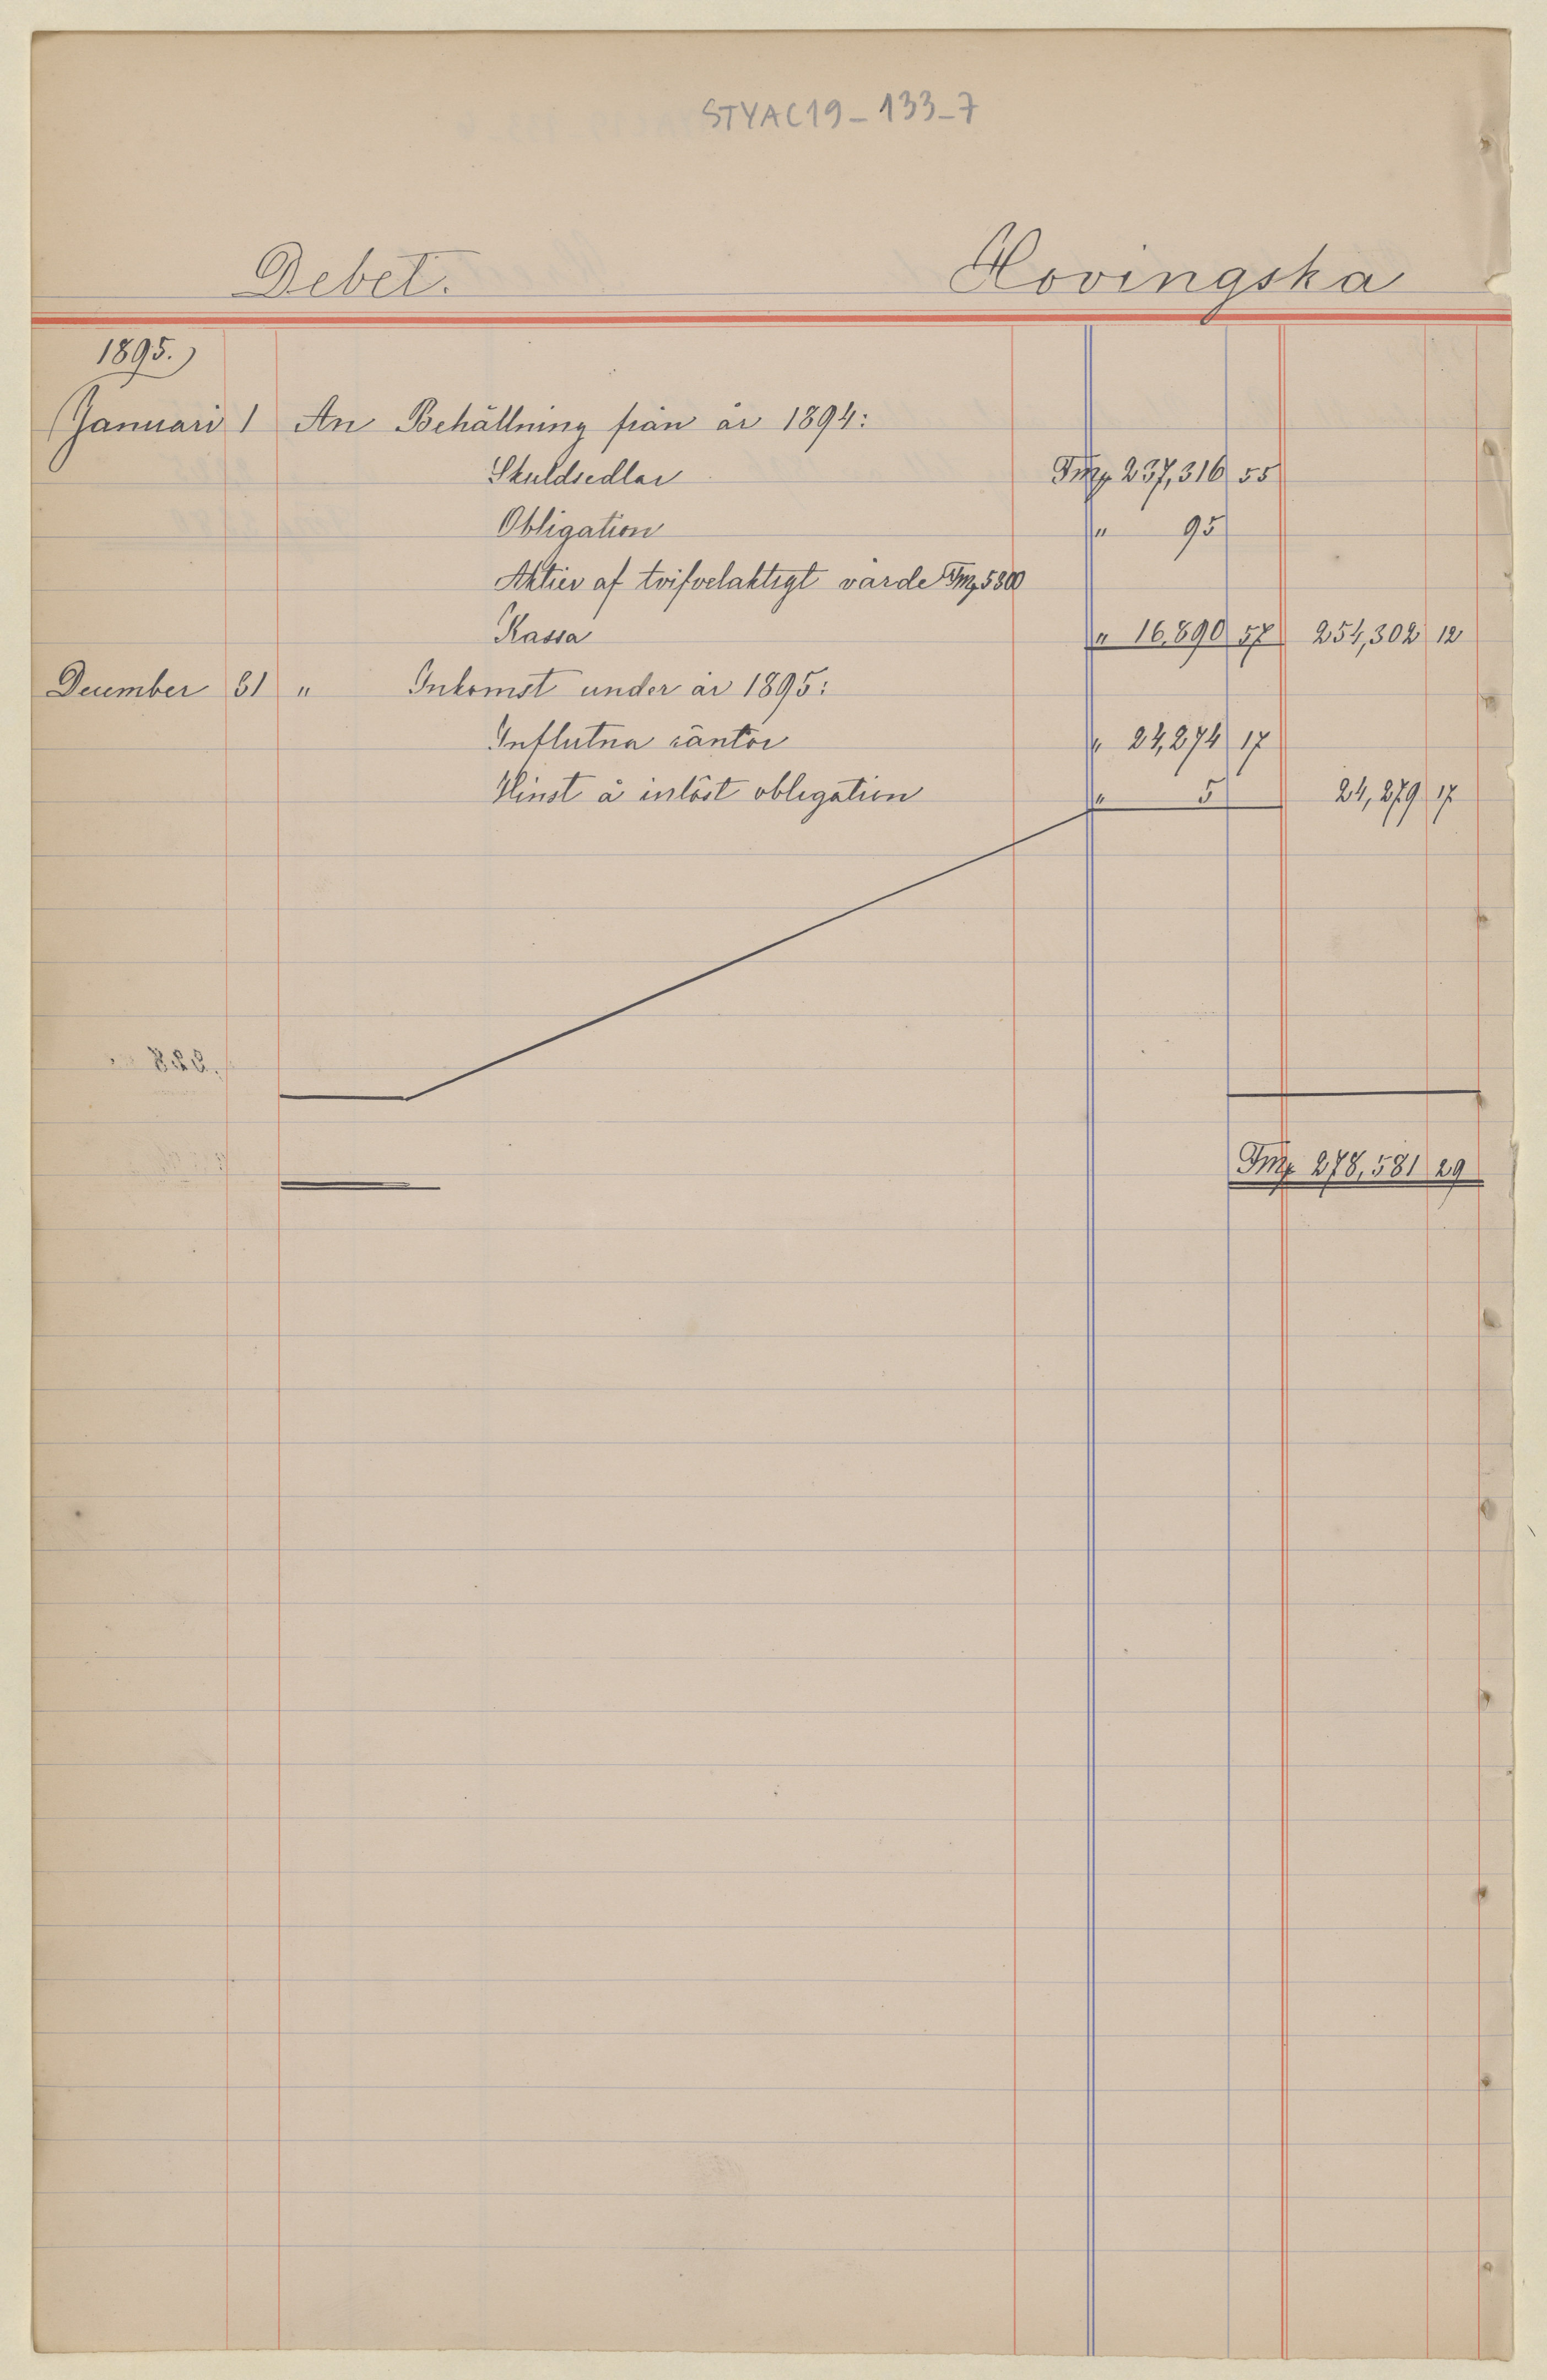 STYAC19-133-7
Debet. Hovingska
1895.
Januari 1 An Behållning från år 1894:
Skuldsedlar Fmk 237,316 55
Obligation " 95
Aktier af tvifvelaktigt värde Fmk 5800
Kassa " 16,890 57 254,302 12
December 31 " Inkomst under år 1895:
Influtna räntor " 24,274 17
Vinst å inlöst obligation " 5 24,279 17
Fmk 278,581 29